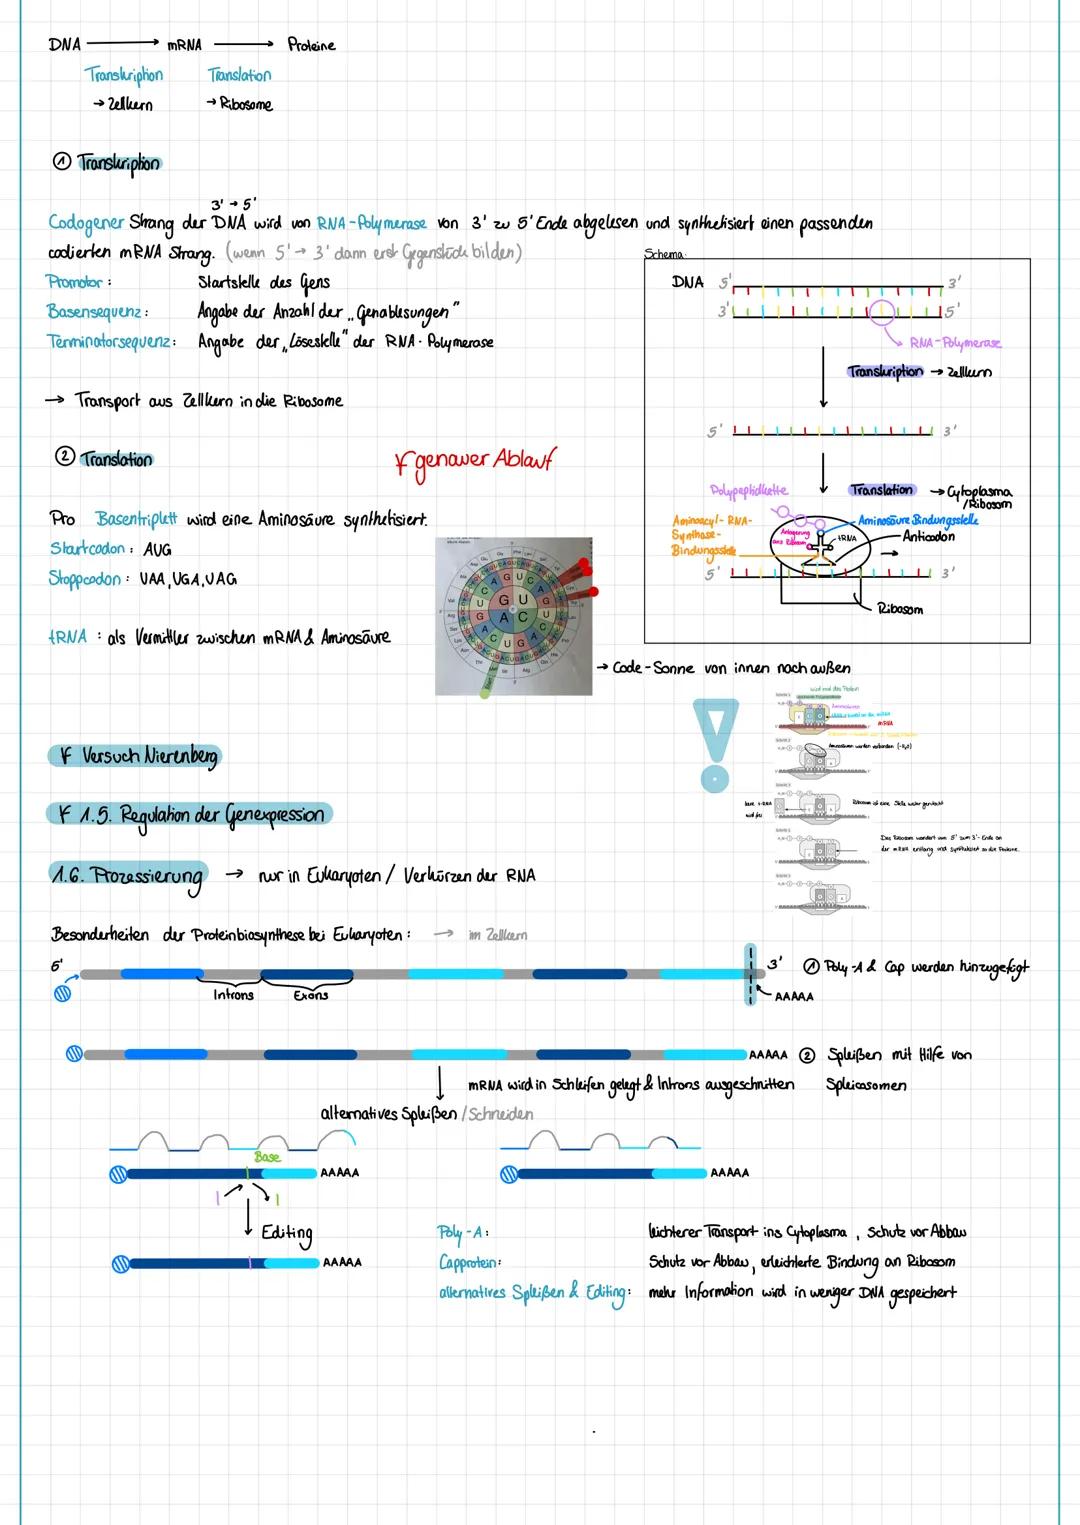 DNA → mRNA → Proteine
Transkription Translation
→ Zellkern → Ribosome
① Transkription
3' → 5'
Codogener Strang der DNA wird von RNA-Polymerase von 3' zu 5' Ende abgelesen und synthetisiert einen passenden
codierten mRNA Strang. (wenn 5' → 3' dann erst Gegenstück bilden)
Promotor: Startstelle des Gens
Basensequenz: Angabe der Anzahl der „Genablesungen"
Terminatorsequenz: Angabe der „Lösestelle" der RNA-Polymerase
→ Transport aus Zellkern in die Ribosome
Schema:
DNA 5' 3'
3' 5'
RNA-Polymerase
Transkription → Zellkern
5' 3'
Polypeptidkette
Translation → Cytoplasma
/Ribosom
Aminoacyl-RNA-
Synthase-
Bindungsstelle
Aminosäure Bindungsstelle
tRNA
Anticodon
5' 3'
Ribosom
② Translation
genauer Ablauf
Pro Basentriplett wird eine Aminosäure synthetisiert.
Startcodon: AUG
Stoppcodon: UAA, UGA, UAG
tRNA: als Vermittler zwischen mRNA & Aminosäure
→ Code-Sonne von innen nach außen
wird mal das Protein
Aminosäuren
mRNA
Aminosäuren werden verbunden (-H₂O)
Ribosom ist eine Stelle weiter gerutscht
Das Ribosom wandert von 5' zum 3'-Ende an
der mRNA entlang und synthetisiert so die Proteine.
Versuch Nierenberg
1.5. Regulation der Genexpression
1.6. Prozessierung → nur in Eukaryoten / Verkürzen der RNA
Besonderheiten der Proteinbiosynthese bei Eukaryoten: → im Zellkern
5' 3' ① Poly-A & Cap werden hinzugefügt
Introns Exons AAAAA
AAAAA ② Spleißen mit Hilfe von
Spleicosomen
mRNA wird in Schleifen gelegt & Introns ausgeschnitten
alternatives Spleißen / Schneiden
Base
AAAAA AAAAA
Editing
AAAAA
Poly-A: leichterer Transport ins Cytoplasma, Schutz vor Abbau
Capprotein: Schutz vor Abbau, erleichterte Bindung an Ribosom
alternatives Spleißen & Editing: mehr Information wird in weniger DNA gespeichert